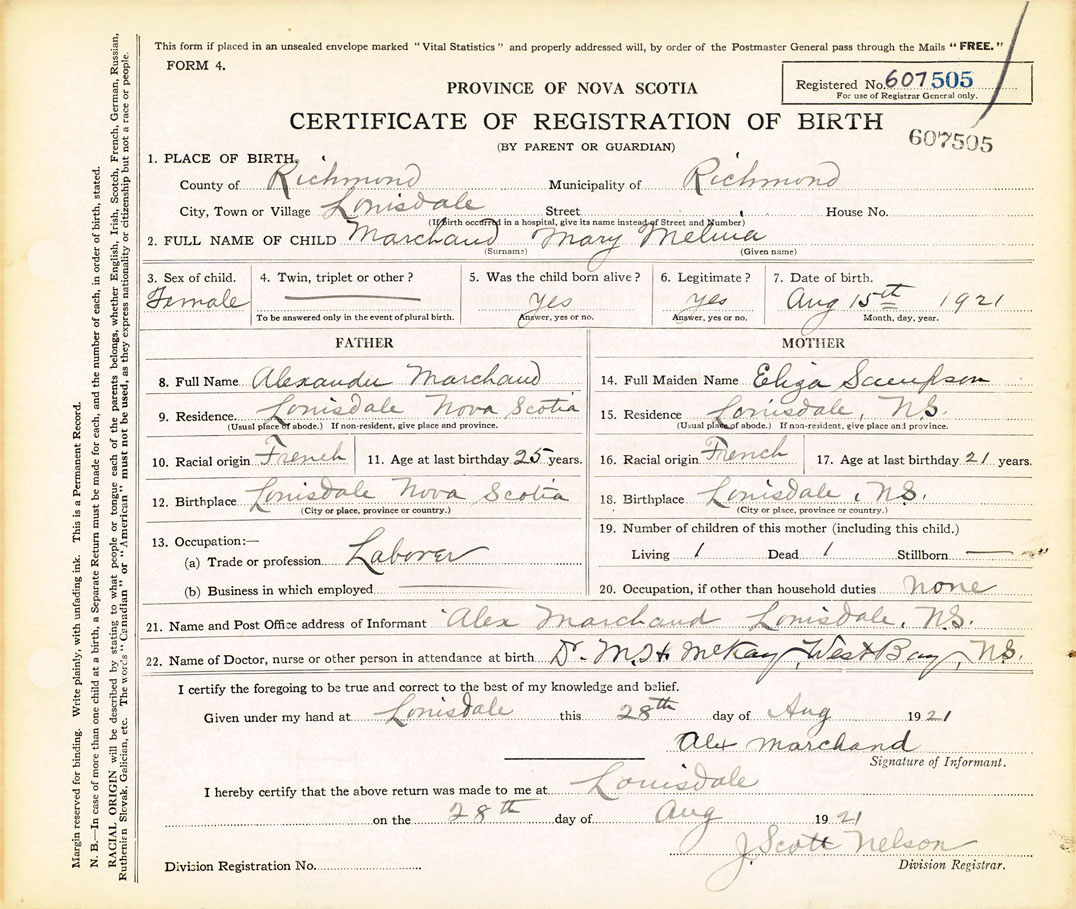 This form if placed in an unsealed envelope marked "Vital Statistics" and properly addressed will, by order of the Postmaster General pass through the Mails "FREE."
FORM 4.
Registered No. 607505
For use of Registrar General only.
PROVINCE OF NOVA SCOTIA
CERTIFICATE OF REGISTRATION OF BIRTH
607505
(BY PARENT OR GUARDIAN)
1. PLACE OF BIRTH,
County of Richmond Municipality of Richmond
City, Town or Village Louisdale Street House No.
(If birth occurred in a hospital, give its name instead of Street and Number)
2. FULL NAME OF CHILD Marchand Mary Melina
(Surname) (Given name)
3. Sex of child. 4. Twin, triplet or other? 5. Was the child born alive? 6. Legitimate? 7. Date of birth.
Female yes yes Aug 15th 1921
To be answered only in the event of plural birth. Answer, yes or no. Answer, yes or no. Month, day, year.
FATHER
8. Full Name Alexander Marchand
9. Residence. Louisdale Nova Scotia
(Usual place of abode.) If non-resident, give place and province.
10. Racial origin French 11. Age at last birthday 25 years.
12. Birthplace Louisdale Nova Scotia
(City or place, province or country.)
13. Occupation:—
(a) Trade or profession Laborer
(b) Business in which employed
MOTHER
14. Full Maiden Name Eliza Sampson
15. Residence Louisdale, N.S.
(Usual place of abode.) If non-resident, give place and province.
16. Racial origin French 17. Age at last birthday 21 years.
18. Birthplace Louisdale, N.S.
(City or place, province or country.)
19. Number of children of this mother (including this child.)
Living 1 Dead 1 Stillborn —
20. Occupation, if other than household duties none
21. Name and Post Office address of Informant Alex Marchand Louisdale, N.S.
22. Name of Doctor, nurse or other person in attendance at birth Dr. M.H McKay, West Bay, N.S.
I certify the foregoing to be true and correct to the best of my knowledge and belief.
Given under my hand at Louisdale this 28th day of Aug 1921
Alex Marchand
Signature of Informant.
I hereby certify that the above return was made to me at Louisdale
on the 28th day of Aug 1921
J. Scott Nelson
Division Registration No. Division Registrar.
Margin reserved for binding. Write plainly, with unfading ink. This is a Permanent Record.
N. B.—In case of more than one child at a birth, a Separate Return must be made for each, and the number of each, in order of birth, stated.
RACIAL ORIGIN will be described by stating to what people or tongue each of the parents belongs, whether English, Irish, Scotch, French, German, Russian,
Ruthenian Slovak, Galician, etc. The words "Canadian" or "American" must not be used, as they express nationality or citizenship but not a race or people.